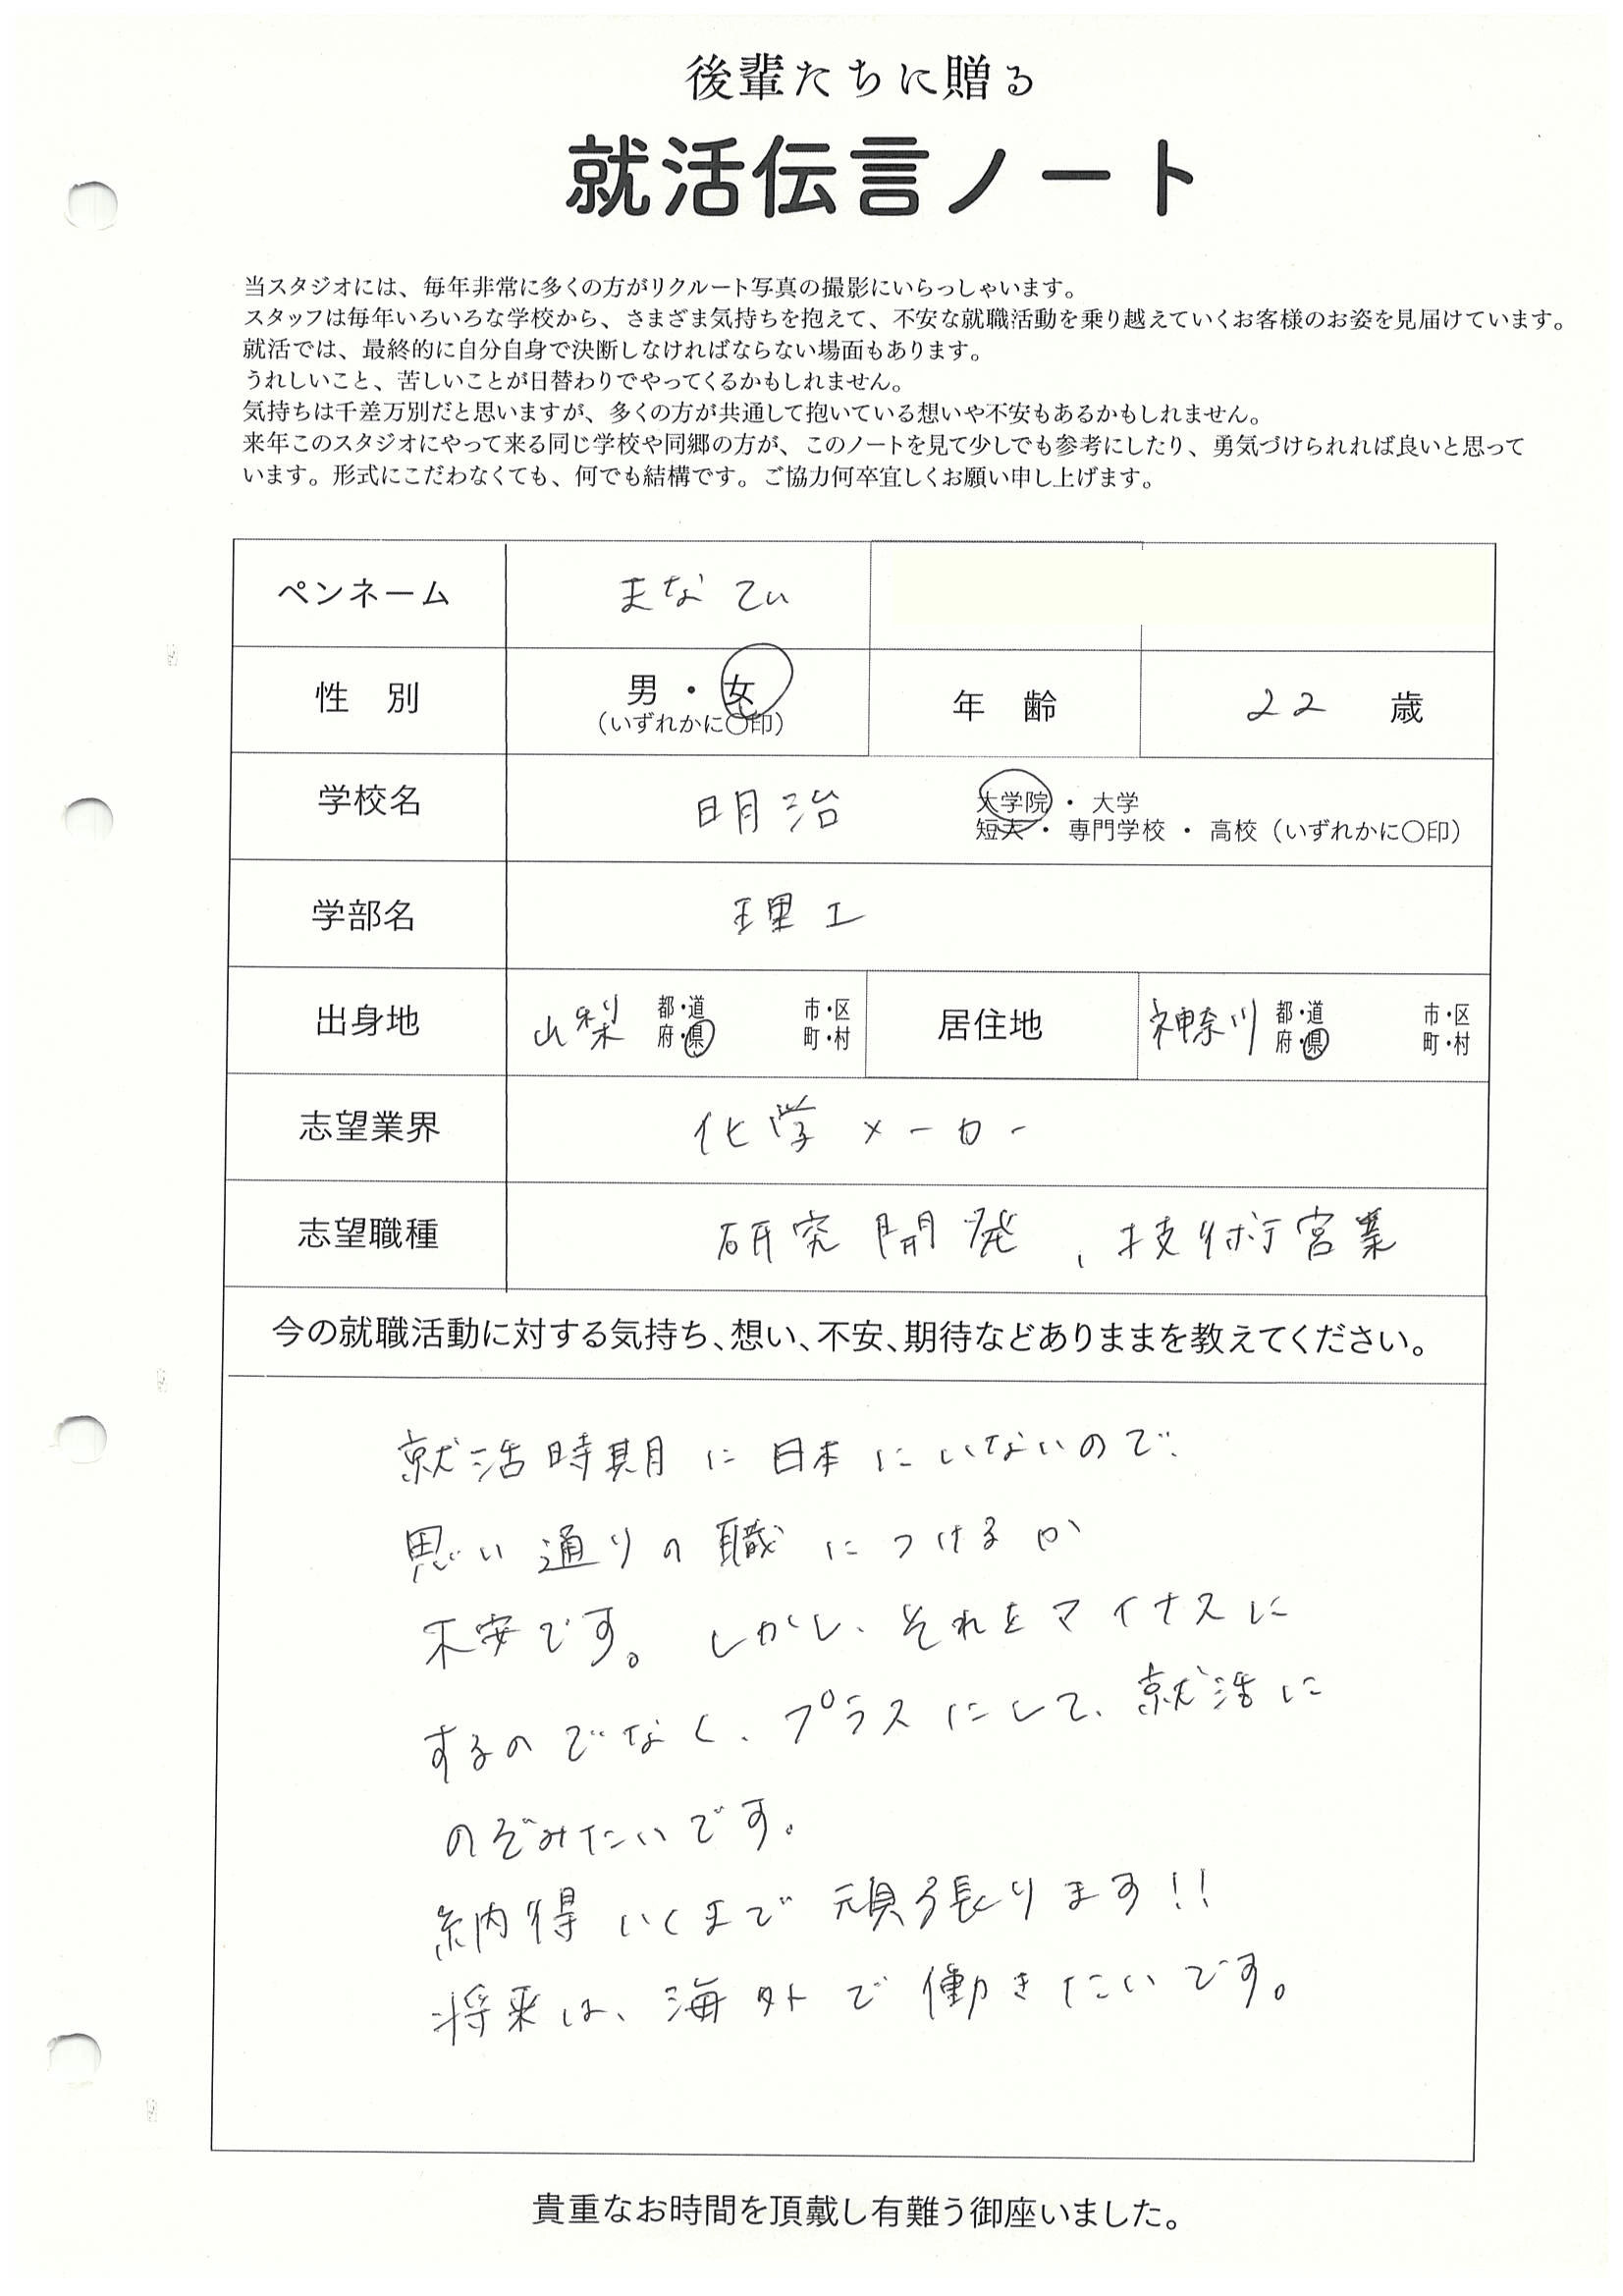 後輩たちに贈る
就活伝言ノート
当スタジオには、毎年非常に多くの方がリクルート写真の撮影にいらっしゃいます。
スタッフは毎年いろいろな学校から、さまざま気持ちを抱えて、不安な就職活動を乗り越えていくお客様のお姿を見届けています。
就活では、最終的に自分自身で決断しなければならない場面もあります。
うれしいこと、苦しいことが日替わりでやってくるかもしれません。
気持ちは千差万別だと思いますが、多くの方が共通して抱いている想いや不安もあるかもしれません。
来年このスタジオにやって来る同じ学校や同郷の方が、このノートを見て少しでも参考にしたり、勇気づけられれば良いと思って
います。形式にこだわなくても、何でも結構です。ご協力何卒宜しくお願い申し上げます。
ペンネーム まなてぃ
性 別 男 ・ 女 (いずれかに〇印) 年 齢 22 歳
学校名 明治 大学院 ・ 大学
短大 ・ 専門学校 ・ 高校 (いずれかに〇印)
学部名 理工
出身地 山梨 都・道 府・県 市・区 町・村 居住地 神奈川 都・道 府・県 市・区 町・村
志望業界 化学メーカー
志望職種 研究開発、技術営業
今の就職活動に対する気持ち、想い、不安、期待などありままを教えてください。
就活時期に日本にいないので、
思い通りの職につけるか
不安です。しかし、それをマイナスに
するのでなく、プラスにして、就活に
のぞみたいです。
納得いくまで頑張ります!!
将来は、海外で働きたいです。
貴重なお時間を頂戴し有難う御座いました。